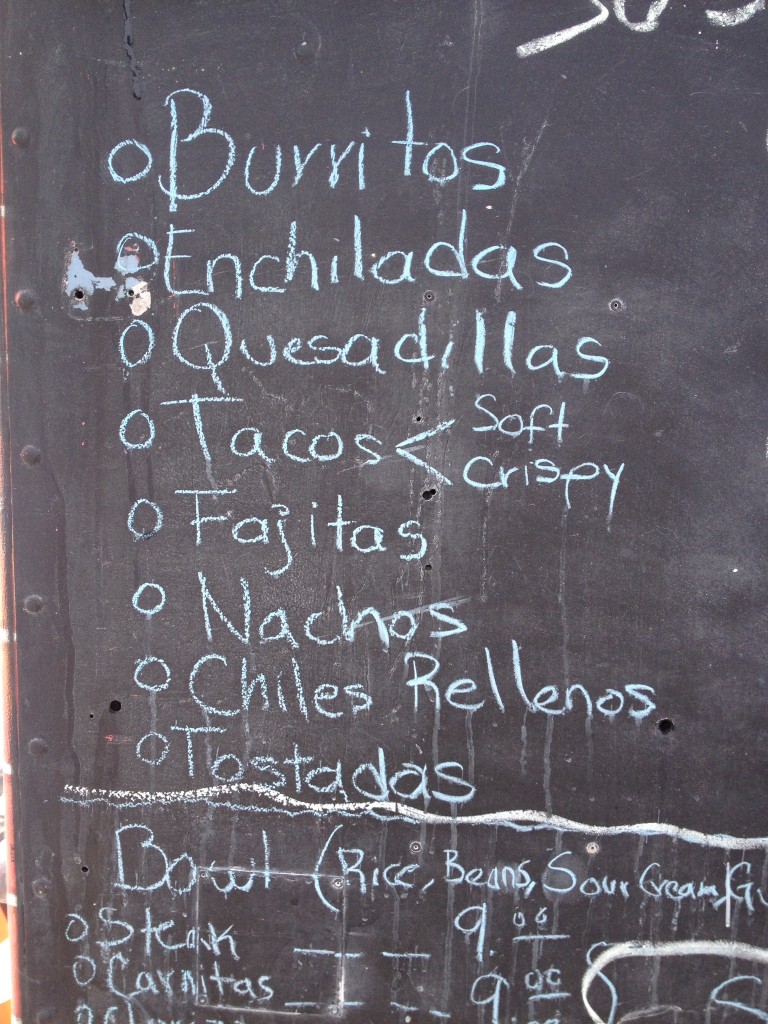 Burritos
Enchiladas
Quesadillas
Tacos < Soft
Crispy
Fajitas
Nachos
Chiles Rellenos
Tostadas
Bowl (Rice, Beans, Sour Cream,
Steak -- -- 9.00
Carnitas -- -- 9.00